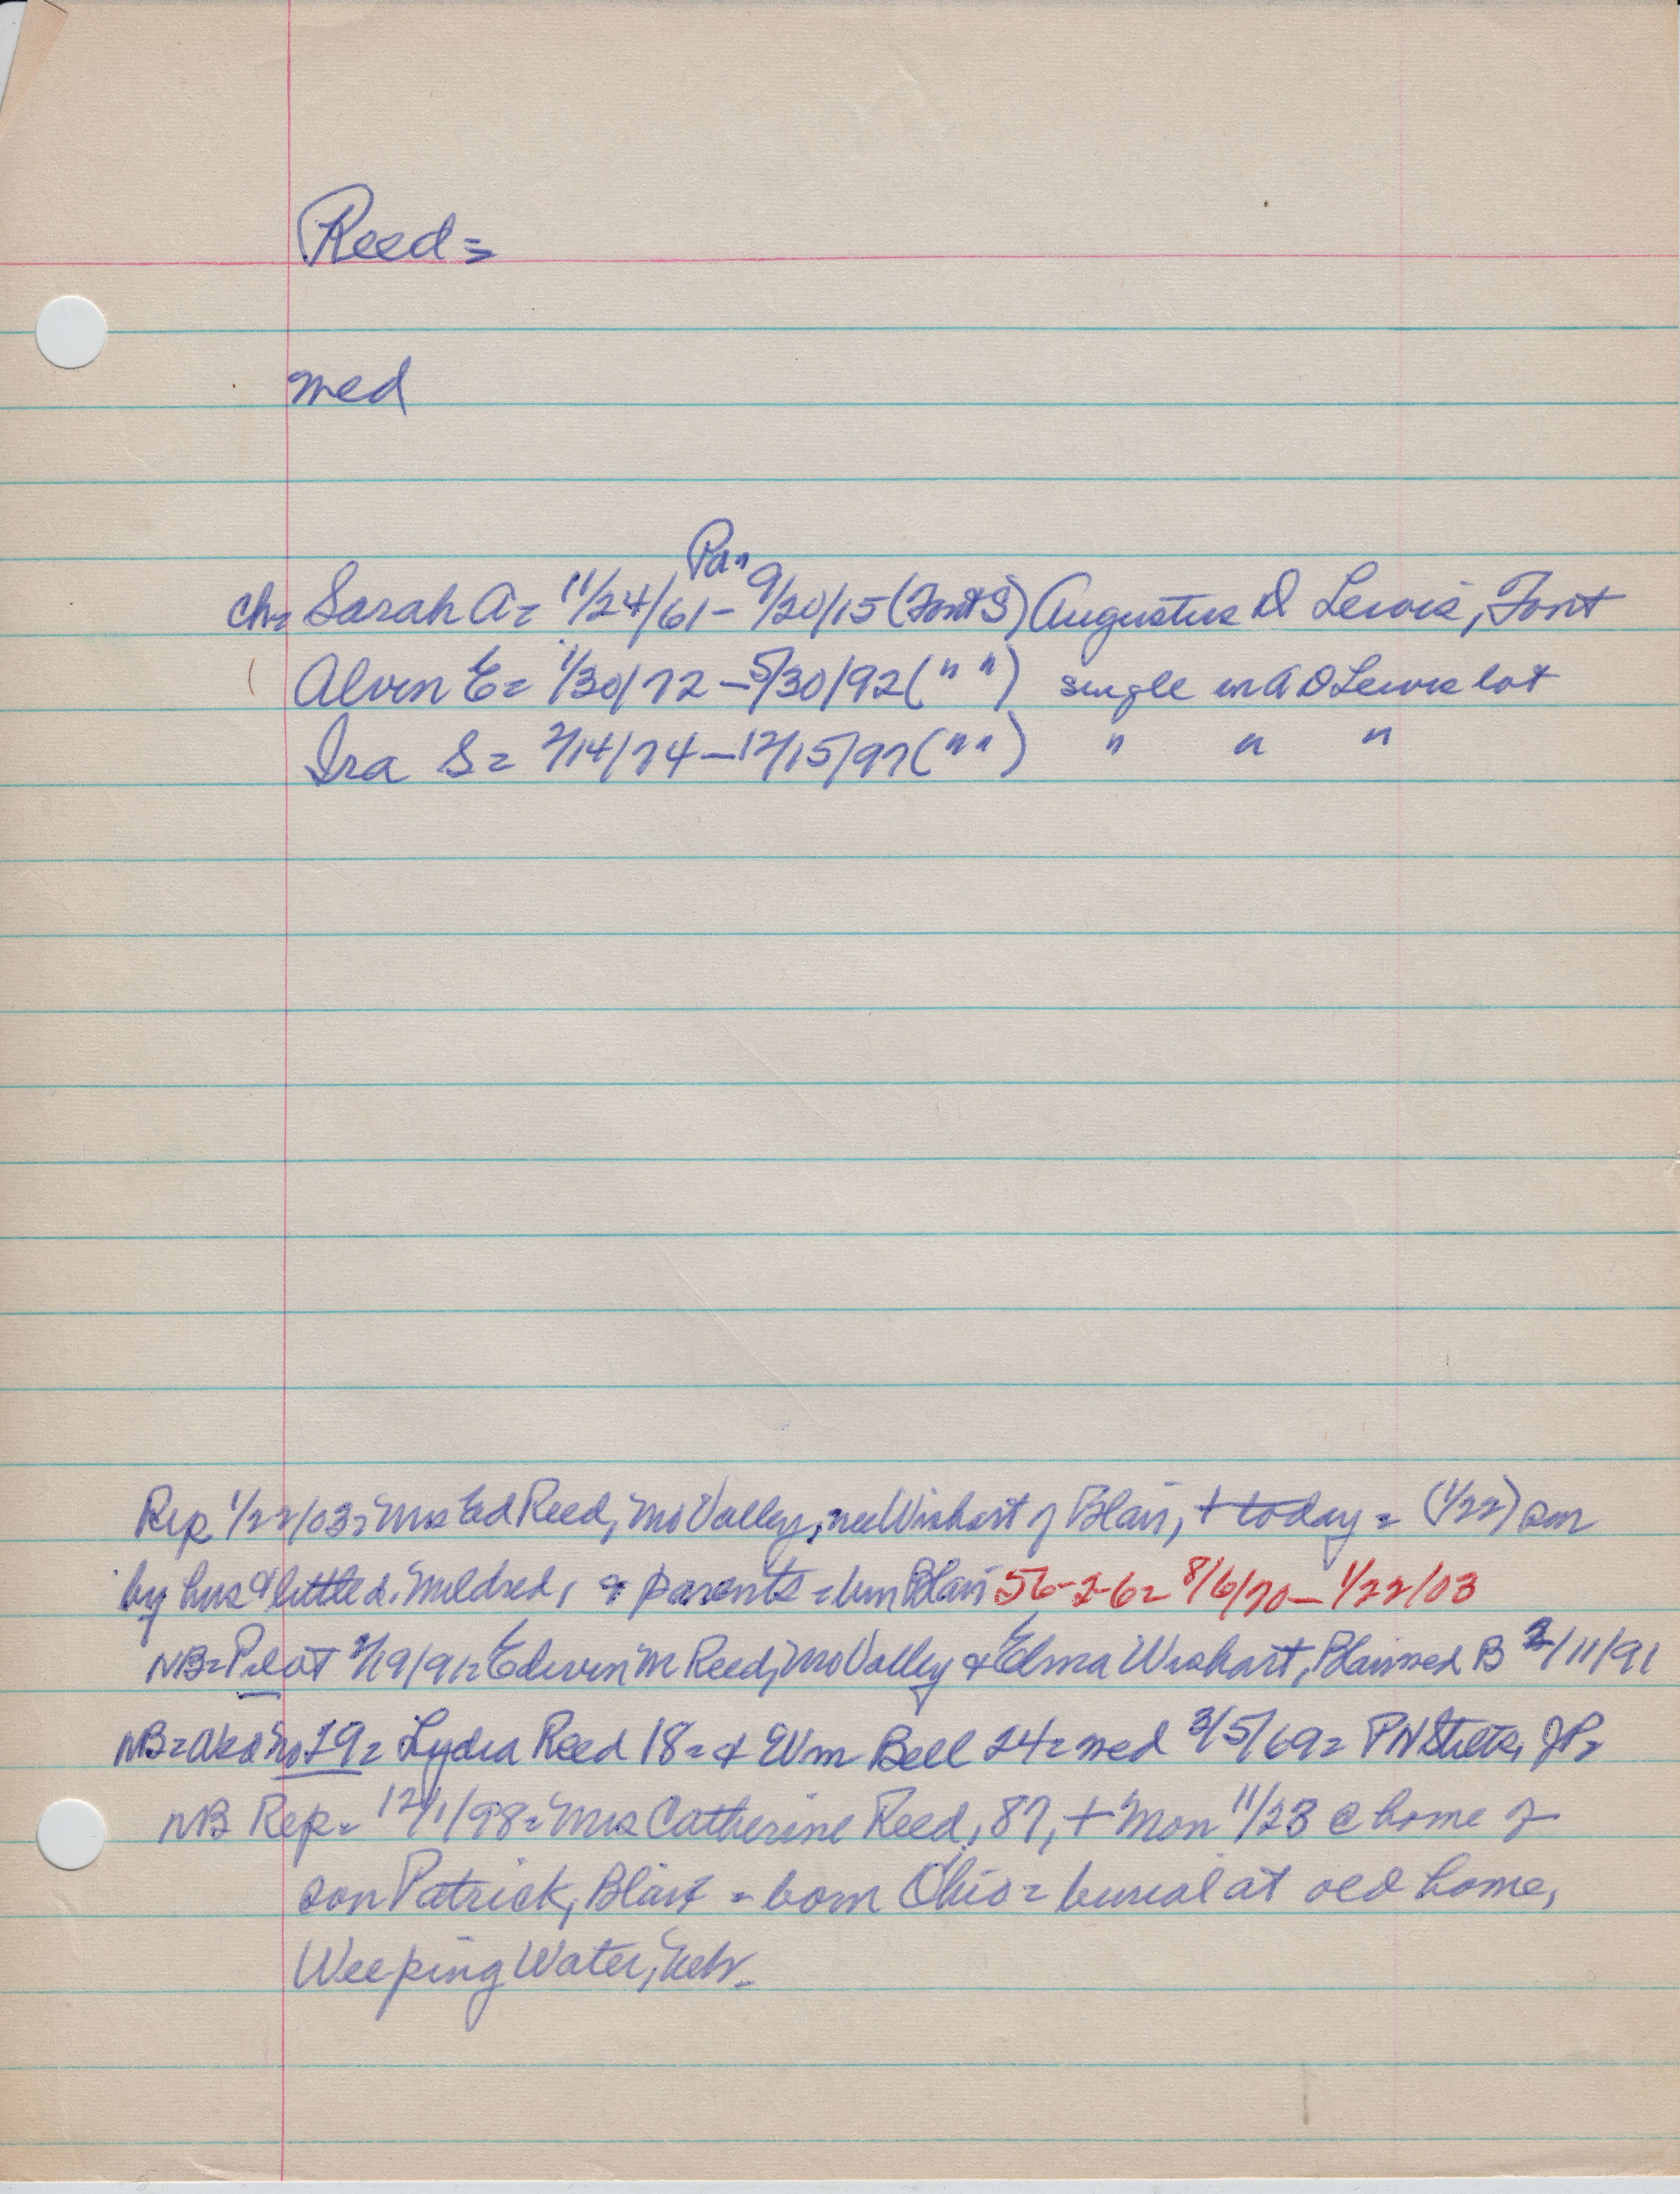 Reed=
med
Pa.
ch= Sarah A= 11/24/61 - 9/20/15 (Font S) Augustus D Lewis, Font
Alven E= 1/30/72 - 5/30/92 (" ") single in A D Lewis lot
Ira S= 2/14/74 - 12/15/97 (" ") " " "
Rep 1/22/03= Mrs Ed Reed, Mo Valley, nee Wishart of Blair, + today = (1/22) sur
by hus & little d. Mildred, & parents = bur Blair 56-2-6= 8/6/70 - 1/22/03
NB= Pilot 2/19/91= Edwin M Reed, Mo Valley & Elma Wishart, Blair med B 2/11/91
NB= 29= Lydia Reed 18= & Wm Bell 24= med 3/5/69= P N JP=
NB Rep= 12/1/98= Mrs Catherine Reed, 87, + Mon 11/28 @ home of
son Patrick, Blair = born Ohio = burial at old home,
Weeping Water, Neb.